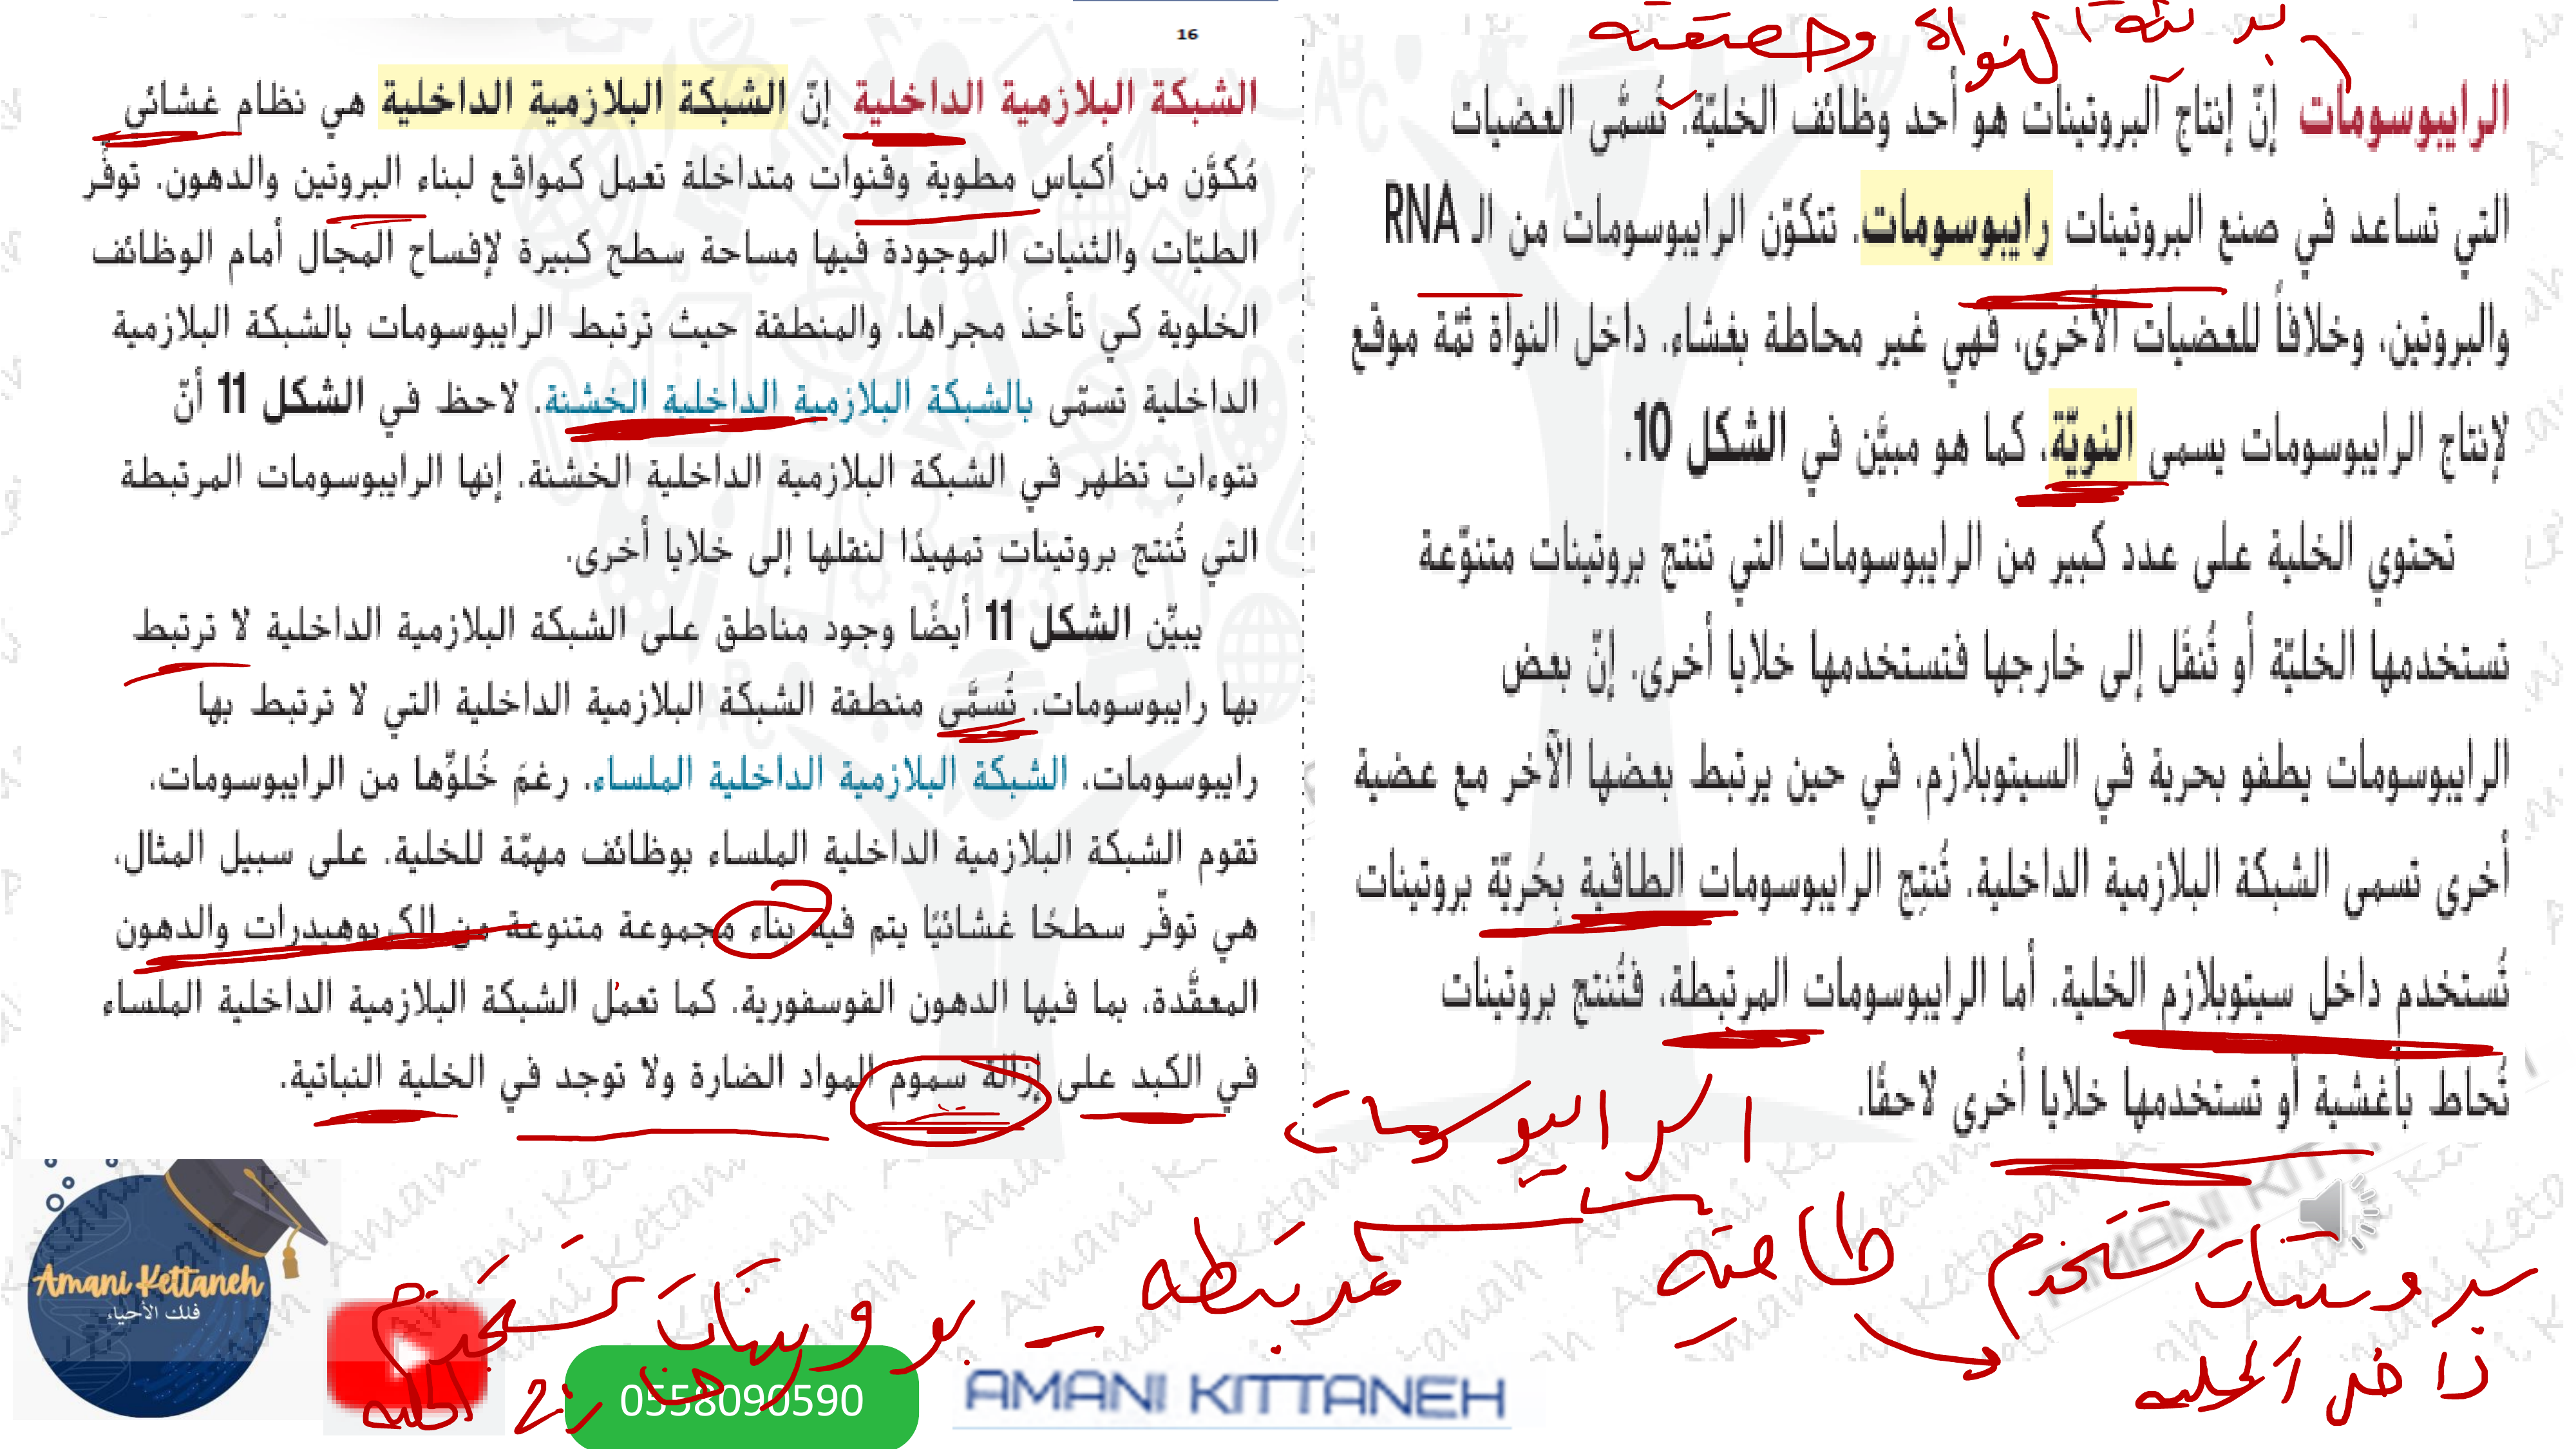 16
الرايبوسومات إنّ إنتاج البروتينات هو أحد وظائف الخليّة. تُسمَّى العضيات
التي تساعد في صنع البروتينات رايبوسومات. تتكوّن الرايبوسومات من الـ RNA
والبروتين، وخلافاً للعضيات الأخرى، فهي غير محاطة بغشاء. داخل النواة ثمّة موقع
لإنتاج الرايبوسومات يسمى النويّة، كما هو مبيَّن في الشكل 10.
تحتوي الخلية على عدد كبير من الرايبوسومات التي تنتج بروتينات متنوّعة
تستخدمها الخليّة أو تُنقَل إلى خارجها فتستخدمها خلايا أخرى. إنّ بعض
الرايبوسومات يطفو بحرية في السيتوبلازم، في حين يرتبط بعضها الآخر مع عضية
أخرى تسمى الشبكة البلازمية الداخلية. تُنتِج الرايبوسومات الطافية بحُريّة بروتينات
تُستخدم داخل سيتوبلازم الخلية. أما الرايبوسومات المرتبطة، فتُنتج بروتينات
تُحاط بأغشية أو تستخدمها خلايا أخرى لاحقًا.
الرايبوسومات
طافية
بروتينات تستخدم
داخل الخلية
مرتبطة – بروتينات تستخدم
الخلية
الشبكة البلازمية الداخلية إنّ الشبكة البلازمية الداخلية هي نظام غشائي
مُكوَّن من أكياس مطوية وقنوات متداخلة تعمل كمواقع لبناء البروتين والدهون. توفّر
الطيّات والثنيات الموجودة فيها مساحة سطح كبيرة لإفساح المجال أمام الوظائف
الخلوية كي تأخذ مجراها. والمنطقة حيث ترتبط الرايبوسومات بالشبكة البلازمية
الداخلية تسمّى بالشبكة البلازمية الداخلية الخشنة. لاحظ في الشكل 11 أنّ
نتوءاتٍ تظهر في الشبكة البلازمية الداخلية الخشنة. إنها الرايبوسومات المرتبطة
التي تُنتج بروتينات تمهيدًا لنقلها إلى خلايا أخرى.
يبيِّن الشكل 11 أيضًا وجود مناطق على الشبكة البلازمية الداخلية لا ترتبط
بها رايبوسومات. تُسمَّى منطقة الشبكة البلازمية الداخلية التي لا ترتبط بها
رايبوسومات، الشبكة البلازمية الداخلية الملساء. رغمَ خُلوِّها من الرايبوسومات،
تقوم الشبكة البلازمية الداخلية الملساء بوظائف مهمّة للخلية. على سبيل المثال،
هي توفّر سطحًا غشائيًا يتم فيه بناء مجموعة متنوعة من الكربوهيدرات والدهون
المعقَّدة، بما فيها الدهون الفوسفورية. كما تعمل الشبكة البلازمية الداخلية الملساء
في الكبد على إزالة سموم المواد الضارة ولا توجد في الخلية النباتية.
Amani Kettaneh
فلك الأحياء
0558090590
AMANI KITTANEH